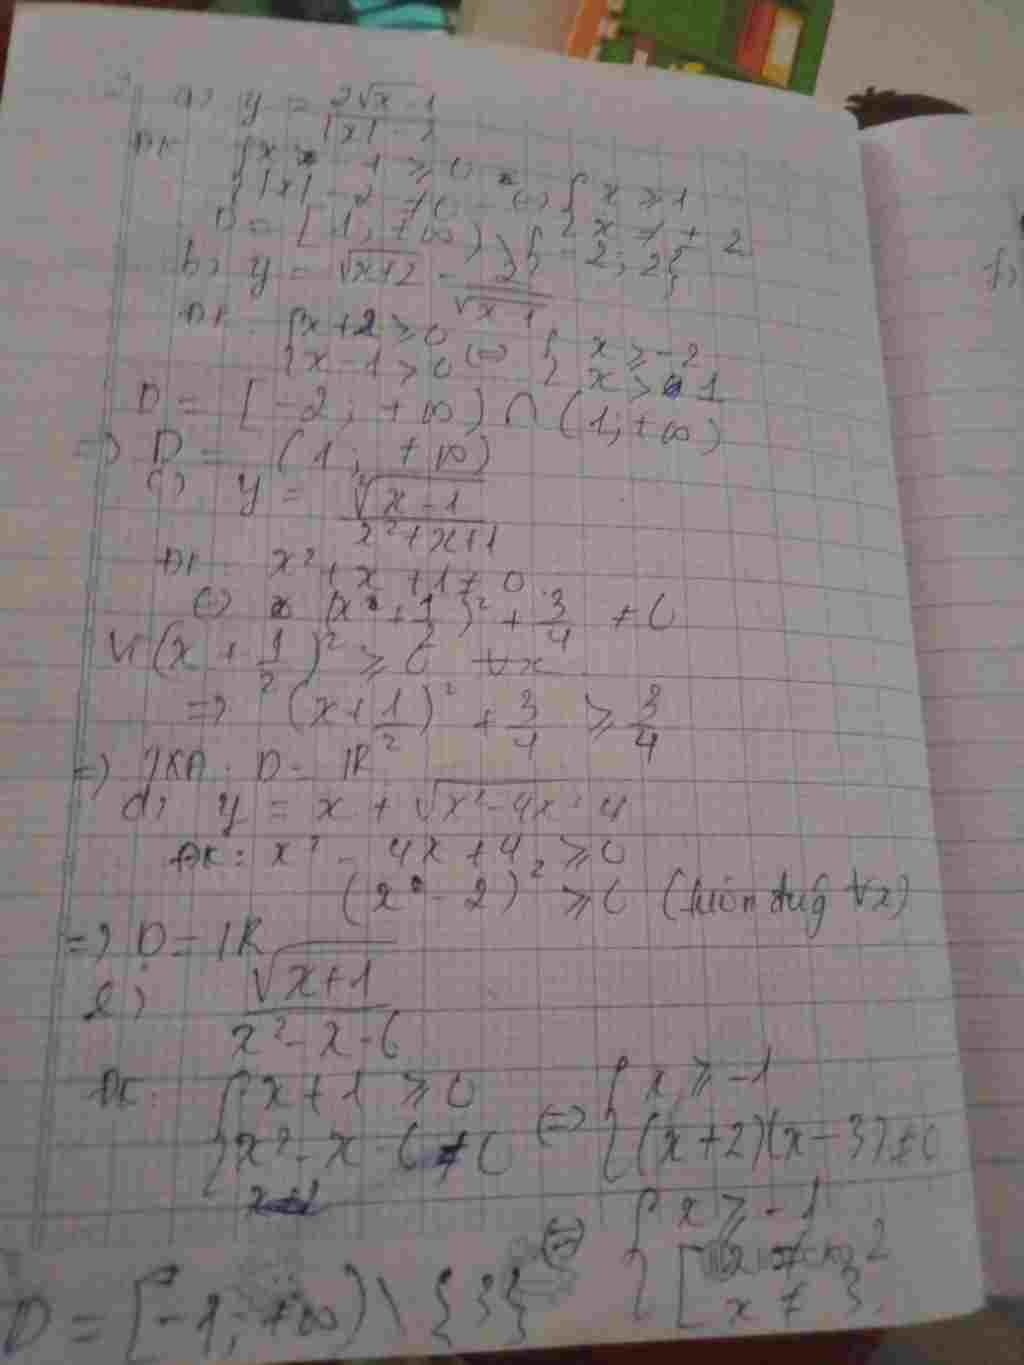 a) y = \frac{2\sqrt{x-1}}{|x|-2}
ĐK: { x - 1 ≥ 0 ; |x| - 2 ≠ 0 <=> { x ≥ 1 ; x ≠ ± 2
D = [1; +∞) \ {-2; 2}
b) y = \sqrt{x+2} - \frac{2}{\sqrt{x-1}}
ĐK: { x + 2 ≥ 0 ; x - 1 > 0 <=> { x ≥ -2 ; x > 1
D = [-2; +∞) ∩ (1; +∞)
=> D = (1; +∞)
c) y = \frac{\sqrt[3]{x-1}}{x²+x+1}
ĐK: x² + x + 1 ≠ 0
<=> (x + \frac{1}{2})² + \frac{3}{4} ≠ 0
Vì (x + \frac{1}{2})² ≥ 0 ∀x
=> (x + \frac{1}{2})² + \frac{3}{4} ≥ \frac{3}{4}
=> TXĐ: D = ℝ
d) y = x + \sqrt{x² - 4x + 4}
ĐK: x² - 4x + 4 ≥ 0
(x - 2)² ≥ 0 (luôn đúg ∀x)
=> D = ℝ
e) \frac{\sqrt{x+1}}{x² - x - 6}
ĐK: { x + 1 ≥ 0 ; x² - x - 6 ≠ 0 <=> { x ≥ -1 ; (x+2)(x-3) ≠ 0
<=> { x ≥ -1 ; [ x ≠ -2 ; x ≠ 3
D = [-1; +∞) \ {3}